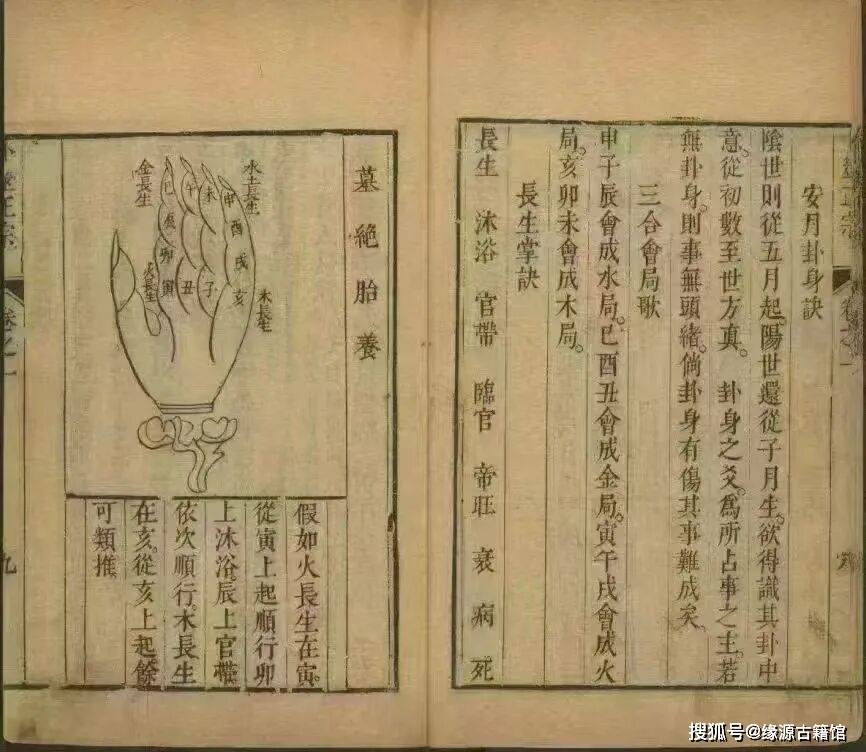 安月卦身訣
陰世則從五月起。陽世還從子月生。欲得識其卦中
意。從初數至世方真。卦身之爻。爲所占事之主。若
無卦身。則事無頭緒。倘卦身有傷。其事難成矣。
三合會局歌
申子辰會成水局。巳酉丑會成金局。寅午戌會成火
局。亥卯未會成木局。
長生掌訣
長生 沐浴 官帶 臨官 帝旺 衰 病 死
墓 絕 胎 養
水土長生
金長生
木長生
火長生
巳
午
未
申
辰
酉
卯
戌
寅
丑
子
亥
假如火長生在寅。
從寅上起順行。卯
上沐浴。辰上官帶。
依次順行。木長生
在亥。從亥上起。餘
可類推。
正宗
卷之一
九
搜狐号@缘源古籍馆